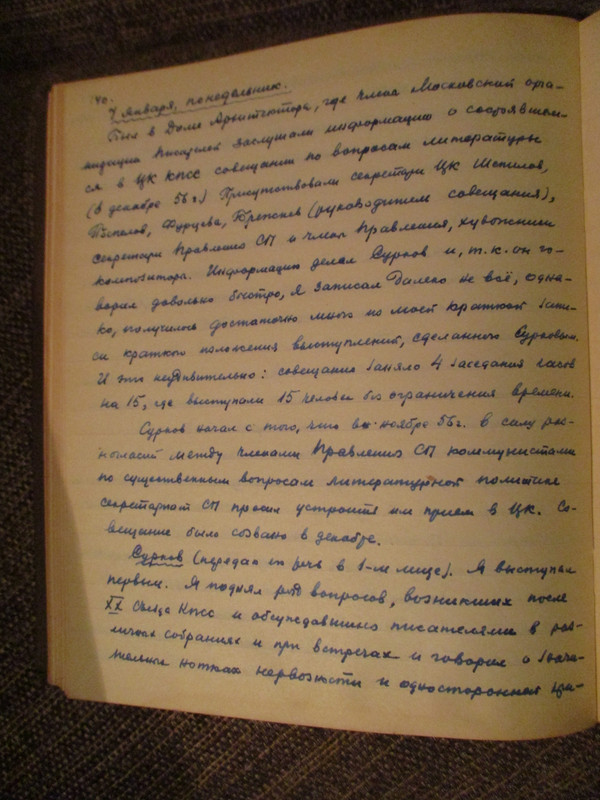 140.
7 января, понедельник.
Был в Доме Архитектора, где члены Московской орга-
низации писателей заслушали информацию о состоявшем-
ся в ЦК КПСС совещании по вопросам литературы
(в декабре 56 г.) Присутствовали секретари ЦК Шепилов,
Поспелов, Фурцева, Брежнев (руководители совещания),
секретари Правления СП и члены Правления, художники
композитора. Информацию делал Сурков и, т.к. он го-
ворил довольно быстро, я записал далеко не всё, одна-
ко, получилось достаточно много по моей краткой запи-
си краткого изложения выступлений, сделанного Сурковым.
И это неудивительно: совещание заняло 4 заседания часов
на 15, где выступали 15 человек без ограничения времени.
Сурков начал с того, что в ноябре 56 г. в силу раз-
ногласий между членами Правления СП коммунистами
по существенным вопросам литературной политики
секретариат СП просил устроить им прием в ЦК. Со-
вещание было созвано в декабре.
Сурков (передал его речь в 1-м лице). Я выступал
первым. Я поднял ряд вопросов, возникших после
XX съезда КПСС и обсуждавшихся писателями в раз-
личных собраниях и при встречах и говорил о
нотках нервозности и односторонней кри-